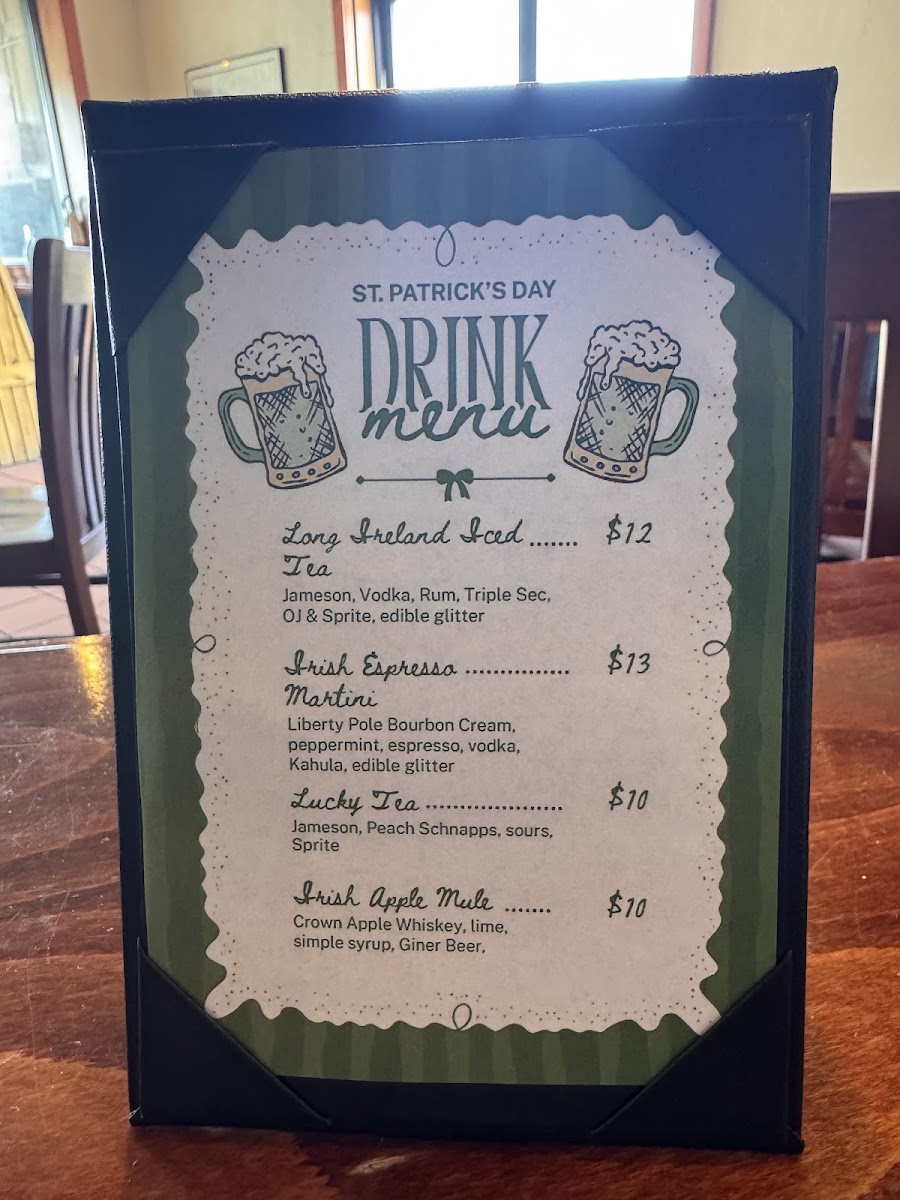 ST. PATRICK'S DAY
DRINK
menu
Long Ireland Iced ....... $12
Tea
Jameson, Vodka, Rum, Triple Sec,
OJ & Sprite, edible glitter
Irish Espresso ............... $13
Martini
Liberty Pole Bourbon Cream,
peppermint, espresso, vodka,
Kahula, edible glitter
Lucky Tea .................... $10
Jameson, Peach Schnapps, sours,
Sprite
Irish Apple Mule ....... $10
Crown Apple Whiskey, lime,
simple syrup, Giner Beer,